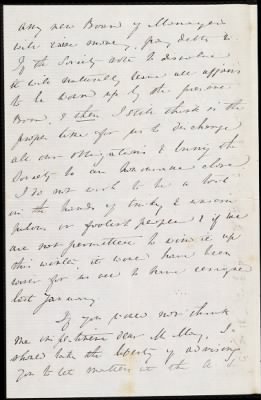 any new Board of Managers
will raise money, pay debts &
If the Society vote to dissolve
it will naturally leave all affairs
to be wound up by the present
Board, & then I still think is the
proper time for us to discharge
all our obligations & bring the
Society to an honorable close
I do not wish to be a tool
in the hands of tricky & unscru-
pulous or foolish people & if we
are not permitted to wind it up
this winter, it would have been
wiser for us all to have resigned
last January
If you would not think
me impertinent dear Mr May, I
should take the liberty of advising
you to let matters at the A. S.